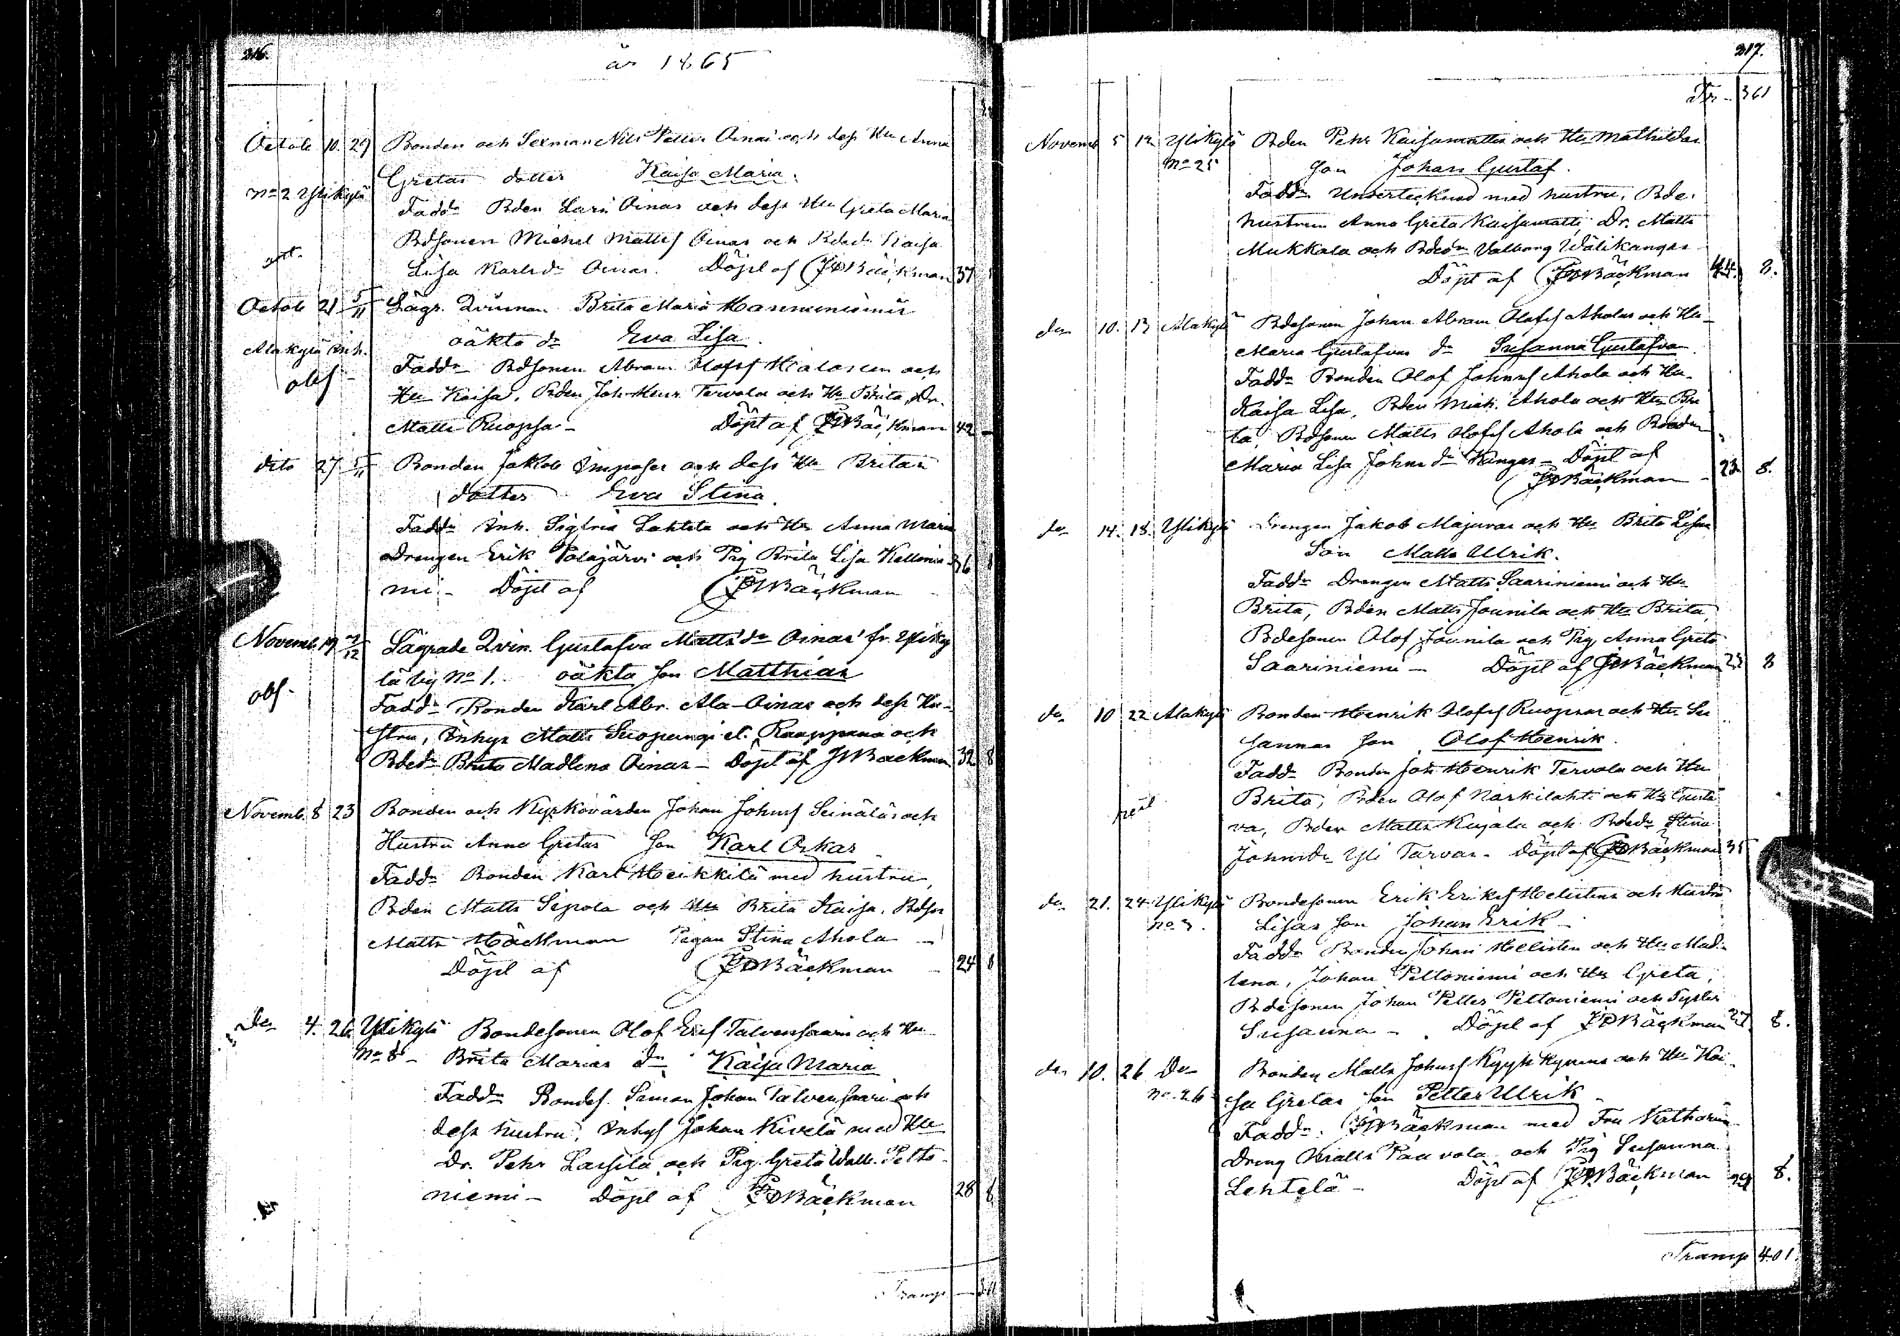 216.
år 1865
Octob 10. 29 Bonden och Sexman Nils Petter Oinas och dess Hu Anna
Gretas dotter Kaisa Maria.
No 2 Ylikylä
Faddr Bden Lars Oinas och dess Hu Greta Maria
Bdsonen Michel Mattsf Oinas och Kaisa
Lisa Karlsdr Oinas. Döpt af JWBäckman 37
Octob 21 5/11 Lägr. Qvinnan Brita Maria
Alakylä inh. oäkta dr Eva Lisa.
obs Faddr Bdsonen Abram Olofsf och
Hu Kaisa, Bden Joh. Henr. Tervola och Hu Brita, Dr.
Matts Ruopsa - Döpt af JWBäckman 42
dito 27 5/11 Bonden Jakob och dess Hu Britas
dotter Eva Stina.
Faddr Inh. Sigfrid Lehtela och Hu Anna Maria
Drengen Erik Posajärvi och Pig Brita Lisa Kellonie- 36
mi - Döpt af JWBäckman
Novemb. 19 /12 Lägrade Qvin. Gustafva Mattsdr Oinas fr. Yliky
lä by No 1. oäkta son Matthias
obs- Faddr Bonden Karl Abr. Ala-Oinas och dess Hu-
stru, Inhys Matts Suopungi el. Kaappana och
Bdedr Brita Madlena Oinas - Döpt af JWBackman 32 8
Novemb. 8 23 Bonden och Kyrkovärden Johan Johnsf Seinäläs och
Hustru Anna Gretas son Karl Oskar
Faddr Bonden Karl Heikkilä med hustru,
Bden Matts Sipola och Hu Brita Kaisa, Bdsn
Matts Hackman Pigan Stina Ahola -
Döpt af JWBäckman 24 8
do 4. 26 Ylikylä Bondesonen Olof Ersf Talvensaari och Hu
No 8 - Brita Marias dr Kaisa Maria
Faddr Bondes. Johan Talvensaari och
dess hustru, Inhys Johan Kivelä med Hu
Dr. Pehr Lassila och Pig. Greta Walb. Pelto-
niemi - Döpt af JWBäckman 28 8
Transp
217.
Tr - 361
Novemb 5 12 Ylikylä Bden Pehr Kaisamattis och Hu Mathildas
No 25 son Johan Gustaf.
Faddr Undertecknad med hustru, Bde.
hustrun Anna Greta Kaisamatti Dr. Matts
Mukkala och Bdedr Valborg Välikangas
Döpt af JWBäckman 44. 8.
do 10. 13 Alakylä Bdesonen Johan Abram Olofsf Aholas och Hu
Maria Gustafvas dr Susanna Gustafva
Faddr Bonden Olof Johnsf Ahola och Hu
Kaisa Lisa, Bden Mich. Ahola och Hu Bri
ta, Bdsonen Matts Olofsf Ahola och Bdedr
Maria Lisa Johnsdr Kangas - Döpt af
JWBäckman - 23 8.
do 14. 18. Ylikylä Drengen Jakob Majavas och Hu Brita Lisas
Son Matts Ulrik.
Faddr Drengen Matts Saariniemi och Hu
Brita, Bden Matts Jounila och Hu Brita,
Bdesonen Olof Jounila och Pig Anna Greta
Saariniemi - Döpt af JWBäckman 28 8
do 10 22 Alakylä Bonden Henrik Olofsf Ruopsas och Hu Su
sannas son Olof Henrik.
Faddr Bonden Joh Henrik Tervola och Hu
Brita, Bden Olof Narkilahti och Hu Gusta
va, Bden Matts Kujala och Bdedr Stina
Johnsdr Yli Tarvas - Döpt af JWBäckman 35
do 21. 24 Ylikylä Bondesonen Erik Eriksf Helistens och Hustru
No 3. Lisas son Johan Erik -
Faddr Bonden Johan Helisten och Hu Mad-
lena, Johan Peltoniemi och Hu Greta,
Bdesonen Johan Petter Peltoniemi och Syster
Susanna - Döpt af JWBäckman 27. 8.
do 10. 26 Do- Bonden Matts Johnsf och Hu Kai-
No. 26 sa Gretas son Petter Ulrik
Faddr. JWBäckman med Fru Katharina
Dreng Matts Paavola och Pig Susanna
Lehtelä - Döpt af JWBäckman 29 8.
Transp 401.